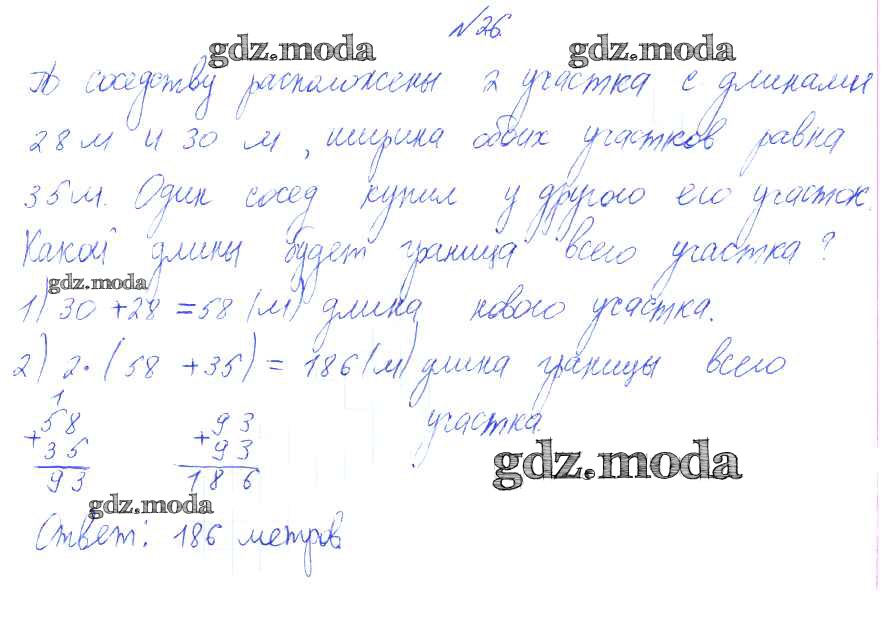 №26.
gdz.moda gdz.moda
По соседству расположены 2 участка с длинами
28 м и 30 м, ширина обоих участков равна
35 м. Один сосед купил у другого его участок.
Какой длины будет граница всего участка?
gdz.moda
1) 30 + 28 = 58 (м) длина нового участка.
2) 2 · (58 + 35) = 186 (м) длина границы всего
участка.
1
58 93
+ +
35 93
93 186
gdz.moda
gdz.moda
Ответ: 186 метров.